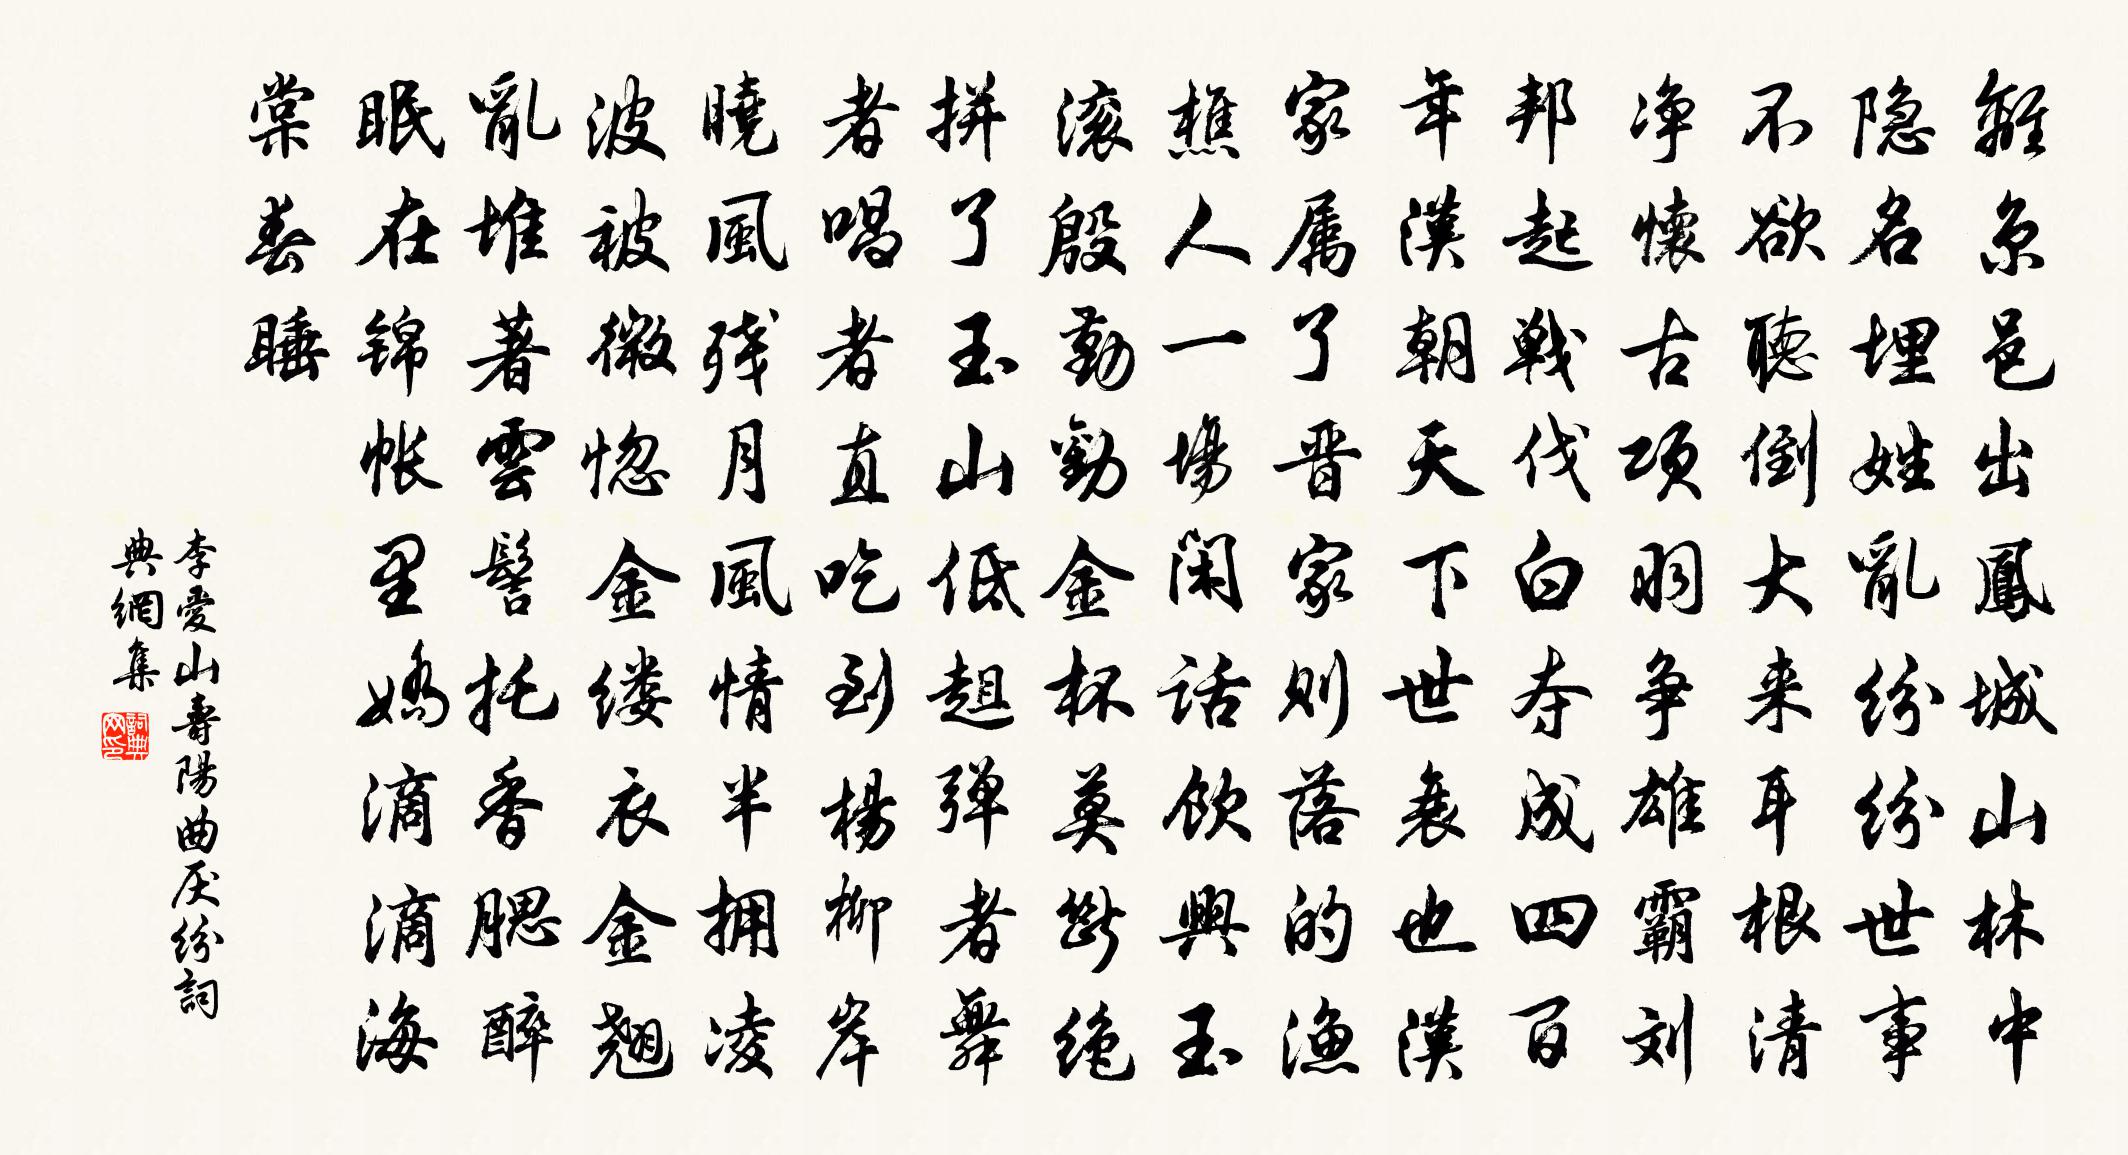 離京邑出鳳城山林中
隐名埋姓亂紛紛世事
不欲聽倒大来耳根清
净懷古项羽争雄霸刘
邦起戰伐白夺成四百
年漢朝天下世衰也漢
家属了晋家则落的渔
樵人一場闲話飲興玉
滚殷勤勸金杯莫断绝
拼了玉山低趄弹者舞
者唱者直吃到楊柳岸
曉風残月風情半拥凌
波被微惚金缕衣金翘
亂堆著雲髻托香腮醉
眠在锦帐里嬌滴滴海
棠春睡
李愛山壽陽曲厌紛詞
典網集
詞典网印